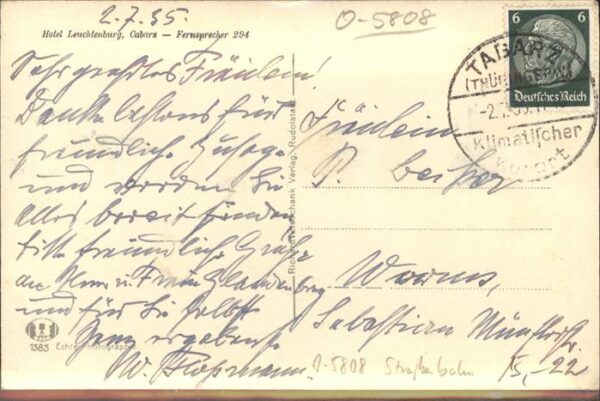 2.7.35.
O-5808
Hotel Leuchtenburg, Cabarz — Fernsprecher 294
6 6
Deutsches Reich
TABARZ
(THÜRINGERW)
-2.7.35
Klimatischer
Kurort
Sehr geehrtes Fräulein!
Danke bestens für
freundliche Zusage
und werden Sie
alles bereit finden
bitte freundliche Grüße
an Herrn u. Frau
und für Sie selbst
Ihr ergebener
W.
Verlag, Rudolstadt
Fräulein
P.
Worms,
Sebastian Münsterstr.
1383 Echte Photographie
O-5808 Straßenbahn
15,-22